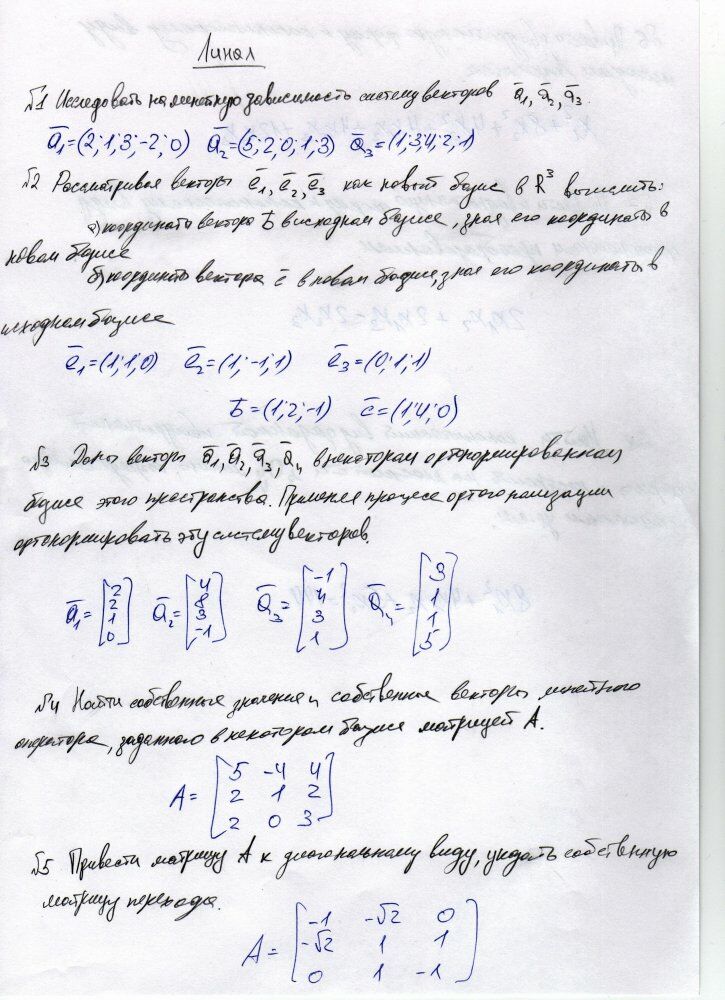 Линал
№1 Исследовать на линейную зависимость систему векторов a̅1, a̅2, a̅3.
a̅1=(2;1;3;-2;0) a̅2=(5;2;0;1;3) a̅3=(1;3;4;2;1)
№2 Рассматривая векторы e̅1, e̅2, e̅3 как новый базис в R³ вычислить:
а) координаты вектора b̅ в исходном базисе, зная его координаты в
новом базисе
б) координаты вектора c̅ в новом базисе, зная его координаты в
исходном базисе
e̅1=(1;1;0) e̅2=(1;-1;1) e̅3=(0;1;1)
b̅=(1;2;-1) c̅=(1;4;0)
№3 Даны векторы a̅1, a̅2, a̅3, a̅4 в некотором ортонормированном
базисе этого пространства. Применяя процесс ортогонализации
ортонормировать эту систему векторов.
a̅1=[2 2 1 0] a̅2=[4 8 3 -1] a̅3=[-1 4 3 1] a̅4=[3 1 1 5]
№4 Найти собственные значения и собственные векторы линейного
оператора, заданного в некотором базисе матрицей A.
A= [5 -4 4
2 1 2
2 0 3]
№5 Привести матрицу A к диагональному виду, указать собственную
матрицу перехода.
A= [-1 -√2 0
-√2 1 1
0 1 -1]